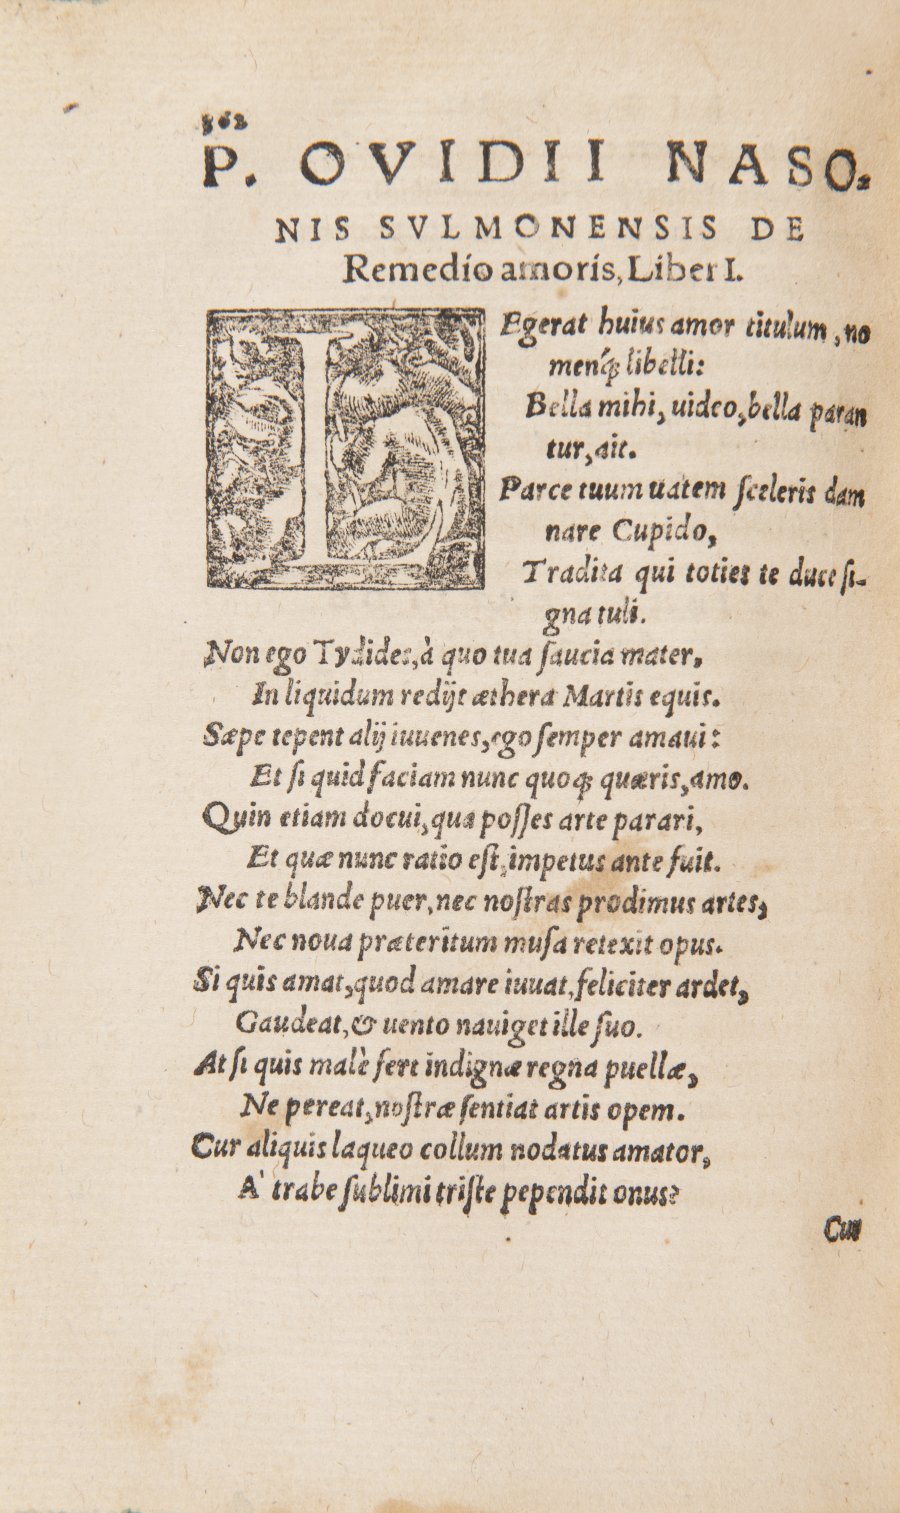 362
P. OVIDII NASO-
NIS SVLMONENSIS DE
Remedio amoris, Liber I.
LEgerat huius amor titulum, no
menq́ꝫ libelli:
Bella mihi, uideo, bella paran
tur, ait.
Parce tuum uatem sceleris dam
nare Cupido,
Tradita qui toties te duce si-
gna tuli.
Non ego Tydides, à quo tua saucia mater,
In liquidum redijt æthera Martis equis.
Sæpe tepent alij iuuenes, ego semper amaui:
Et si quid faciam nunc quoqꝫ quæris, amo.
Quin etiam docui, qua posses arte parari,
Et quæ nunc ratio est, impetus ante fuit.
Nec te blande puer, nec nostras prodimus artes,
Nec noua præteritum musa retexit opus.
Si quis amat, quod amare iuuat, feliciter ardet,
Gaudeat, & uento nauiget ille suo.
At si quis malè fert indignæ regna puellæ,
Ne pereat, nostræ sentiat artis opem.
Cur aliquis laqueo collum nodatus amator,
A' trabe sublimi triste pependit onus?
Cur